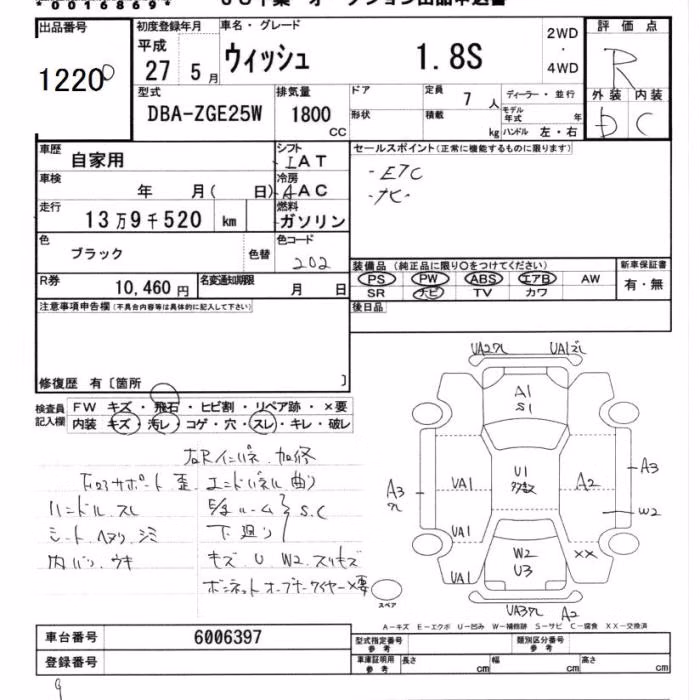 *0016869*
ＪＵ千葉 オークション出品申込書
出品番号
12200
初度登録年月
平成
27 5 月
車名・グレード
ウィッシュ 1.8S
2WD
・
4WD
評価点
R
外装 内装
D C
型式
DBA-ZGE25W
排気量
1800
CC
ドア
形状
定員 7 人
積載 kg
ディーラー・並行
モデル年式 年
ハンドル 左・右
車歴 自家用
シフト
IAT
車検 年 月( 日)
冷房
AAC
走行 13万9千520 km
燃料
ガソリン
色 ブラック 色替
色コード
202
R券 10,460 円
名変通知期限 月 日
セールスポイント(正常に機能するものに限ります)
・ETC
・ナビ
装備品 (純正品に限り○をつけてください)
PS PW ABS エアB AW
SR ナビ TV カワ
新車保証書
有・無
後日品
注意事項申告欄(不具合内容等は具体的に記入して下さい)
修復歴 有〔箇所 〕
検査員
記入欄
FW キズ・飛石・ヒビ割・リペア跡・×要
内装 キズ・汚レ・コゲ・穴・スレ・キレ・破レ
右Rインパネ 加修
歪 エンドパネル曲り
ハンドルスレ
ルーム S.C
シートヘタリ シミ
下廻り
内バリ ウキ
キズ U W2 スリキズ
ボンネットオープナーワイヤー×要
A1
S1
U1
UA1
A2
A3
A3
W2
UA1
××
W2
U3
UA1
A2
スペア
A－キズ E－エクボ U－凹み W－補修跡 S－サビ C－腐食 XX－交換済
車台番号 6006397
登録番号
型式指定番号
参考
類別区分番号
参考
車庫証明用
参考
長さ cm 幅 cm 高さ cm